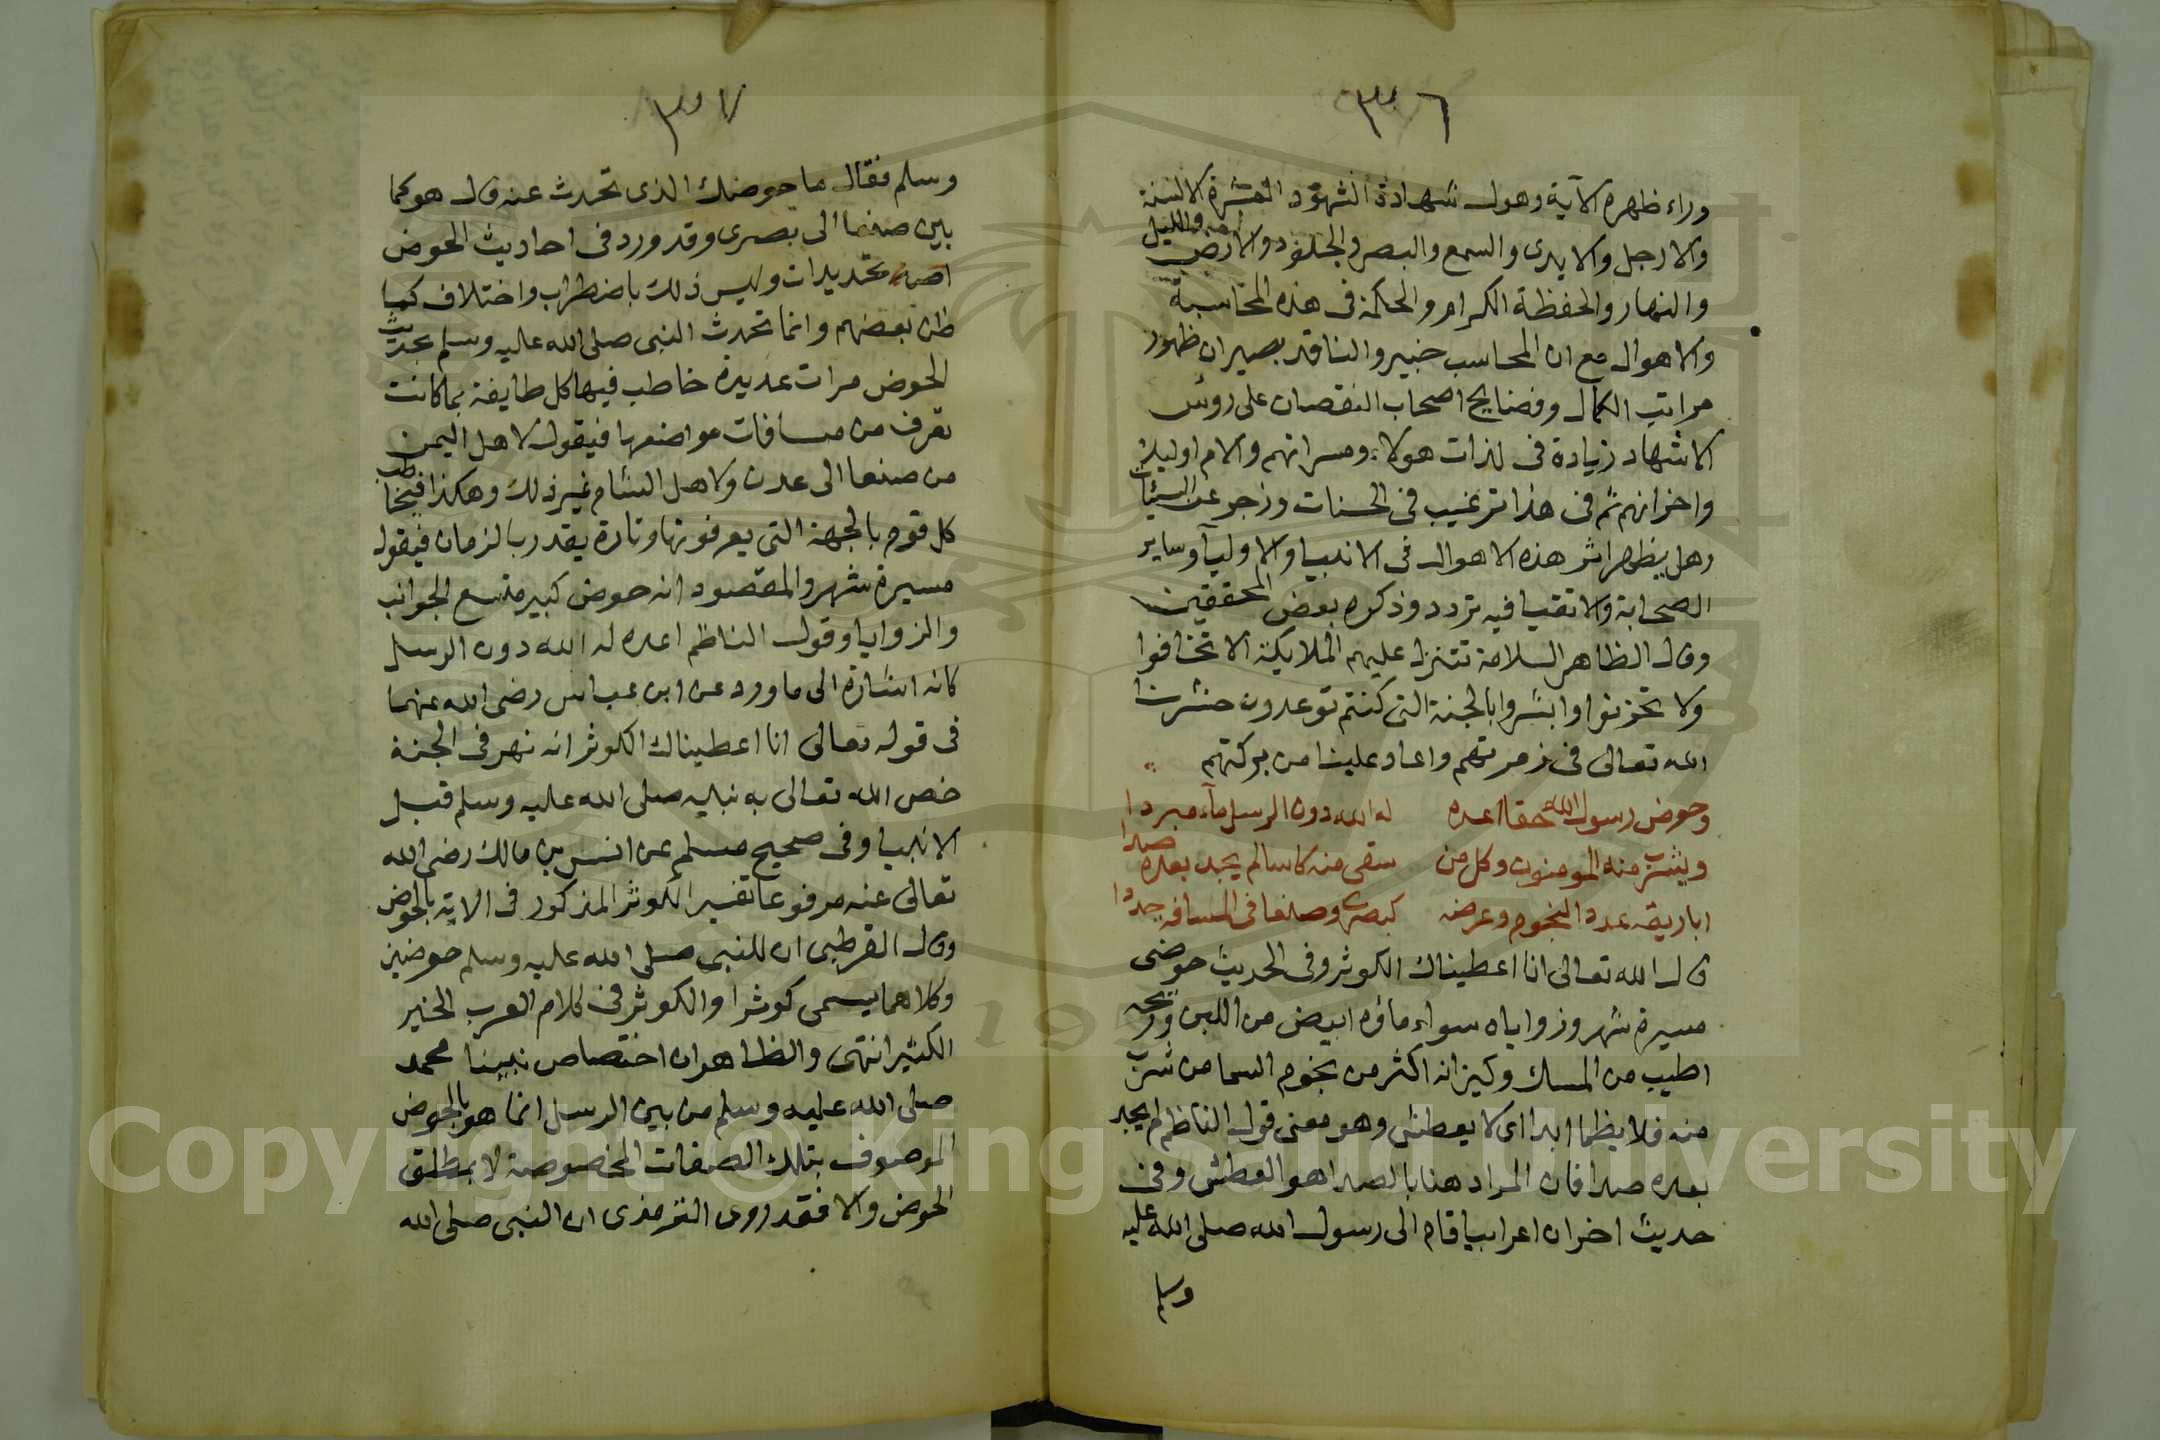 ٣٠٦
وراء ظهره الآية وهول شهادة الشهود العشرة الالسنة
والارجل والايدى والسمع والبصر والجلود والارض والليل
والنهار والحفظة الكرام والحكمة فى هذه المحاسبة
والاهوال مع ان المحاسب خبير والناقد بصير ان ظهور
مراتب الكمال وفضايح اصحاب النقصان على روس
الاشهاد زيادة فى لذات هولاء ومسراتهم والام اوليك
واحزانهم ثم فى هذا ترغيب فى الحسنات وزجر عن السيئات
وهل يظهر اثر هذه الاهوال فى الانبيا والاوليآ وساير
الصحابة والاتقيا فيه تردد وذكره بعض المحققين
وقال الظاهر السلامة تتنزل عليهم الملايكة الا تخافوا
ولا تحزنوا وابشروا بالجنة التى كنتم توعدون حشرنا
الله تعالى فى زمرتهم واعاد علينا من بركتهم
وحوض رسول الله حقا اعده له الله دون الرسل مآء مبردا
ويشرب منه المومنون وكل من سقى منه كاسا لم يجد بعده صدا
اباريقه عدد النجوم وعرضه كبصرى وصنعا فى المسافه حددا
قال الله تعالى انا اعطيناك الكوثر وفى الحديث حوضى
مسيرة شهر وزواياه سواء ماؤه ابيض من اللبن وريحه
اطيب من المسك وكيزانه اكثر من نجوم السما من شرب
منه فلا يظما ابدا اى لا يعطش وهو معنى قول الناظم لم يجد
بعده صدا فان المراد هنا بالصدا هو العطش وفى
حديث اخر ان اعرابيا قام الى رسول الله صلى الله عليه
وسلم
٣٠٧
وسلم فقال ما حوضك الذى تحدث عنه قال هو كما
بين صنعا الى بصرى وقد ورد فى احاديث الحوض
تحديدات وليس ذلك باضطراب واختلاف كما
ظن بعضهم وانما تحدث النبى صلى الله عليه وسلم بحديث
الحوض مرات عديدة خاطب فيها كل طايفة بما كانت
تعرف من مسافات مواضعها فيقول لاهل اليمن
من صنعا الى عدن ولاهل الشام غير ذلك وهكذا فيخاطب
كل قوم بالجهة التى يعرفونها وتارة يقدر بالزمان فيقول
مسيرة شهر والمقصود انه حوض كبير متسع الجوانب
والزوايا وقول الناظم اعده له الله دون الرسل
كانه اشارة الى ما ورد عن ابن عباس رضى الله عنهما
فى قوله تعالى انا اعطيناك الكوثر انه نهر فى الجنة
خص الله تعالى به نبيه صلى الله عليه وسلم قبل
الانبيا وفى صحيح مسلم عن انس بن مالك رضى الله
تعالى عنه مرفوعا تفسير الكوثر المذكور فى الاية بالحوض
وقال القرطبى ان للنبى صلى الله عليه وسلم حوضين
وكلاهما يسمى كوثرا والكوثر فى كلام العرب الخير
الكثير انتهى والظاهر ان اختصاص نبينا محمد
صلى الله عليه وسلم من بين الرسل انما هو بالحوض
الموصوف بتلك الصفات المخصوصة لا بمطلق
الحوض والا فقد روى الترمذى ان النبى صلى الله
Copyright © King Saud University